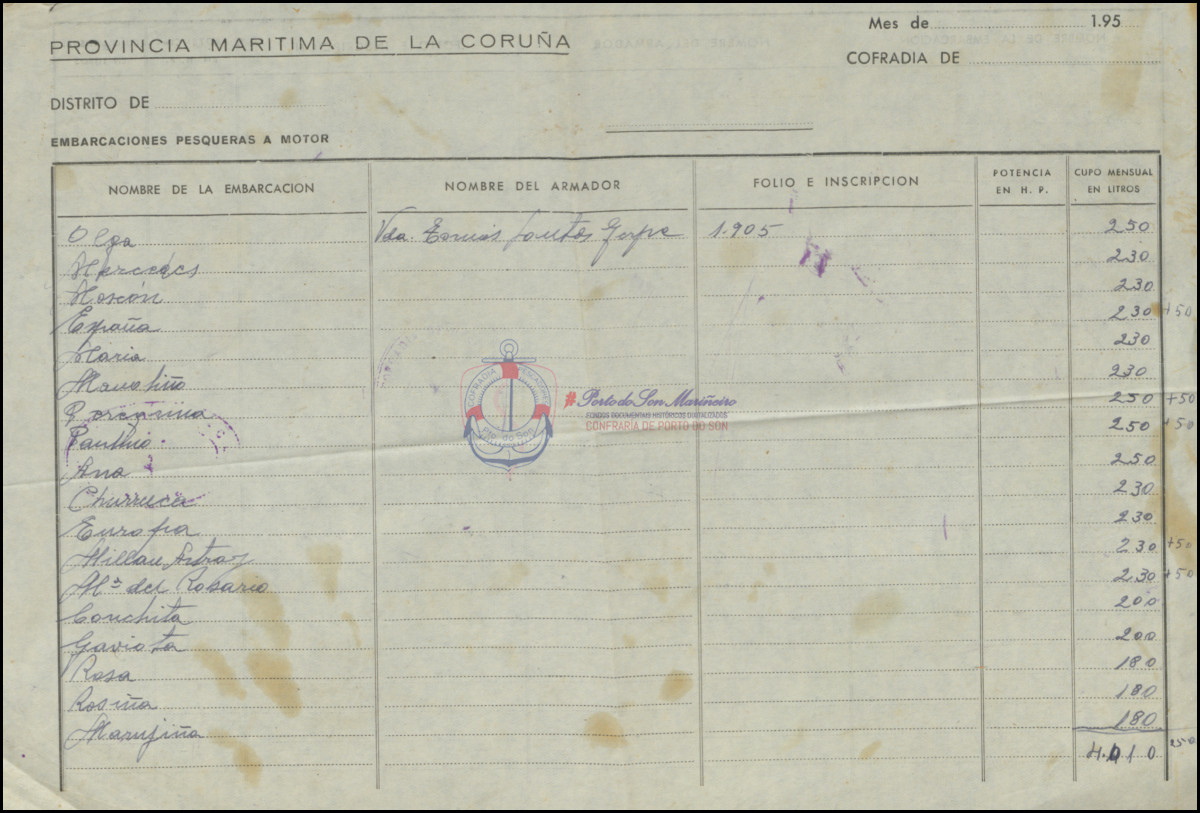 Mes de 1.95
PROVINCIA MARITIMA DE LA CORUÑA
COFRADIA DE
DISTRITO DE
EMBARCACIONES PESQUERAS A MOTOR
NOMBRE DE LA EMBARCACION NOMBRE DEL ARMADOR FOLIO E INSCRIPCION POTENCIA EN H. P. CUPO MENSUAL EN LITROS
Olga Vda. Tomás Santos 1.905 250
Mercedes 230
Moscón 230
España 230 +50
Maria 230
230
Peregrina 250 +50
250 +50
Ana 250
Churruca 230
Europa 230
Millan Astray 230 +50
Mª del Rosario 230 +50
Conchita 200
Gaviota 200
Rosa 180
Rosiña 180
Marujiña 180
4.010 250
COFRADIA PESCADORES
Pto. do Son
#Porto do Son Mariñeiro
FONDOS DOCUMENTAIS HISTÓRICOS DIXITALIZADOS
CONFRARÍA DE PORTO DO SON